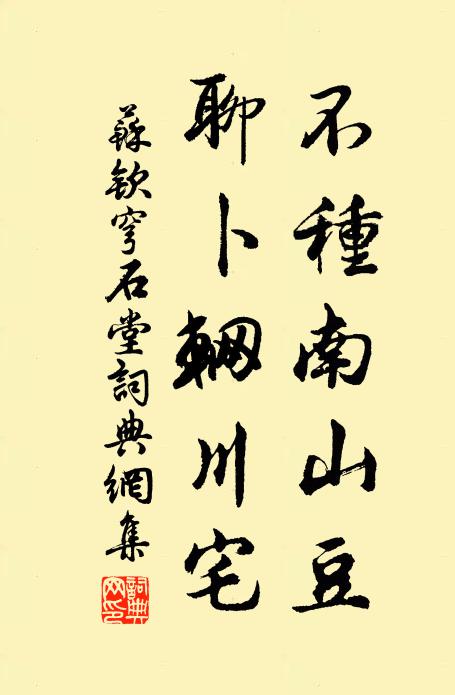 不種南山豆
聊卜輞川宅
蘇欽穹石堂詞典網集
詞典网印